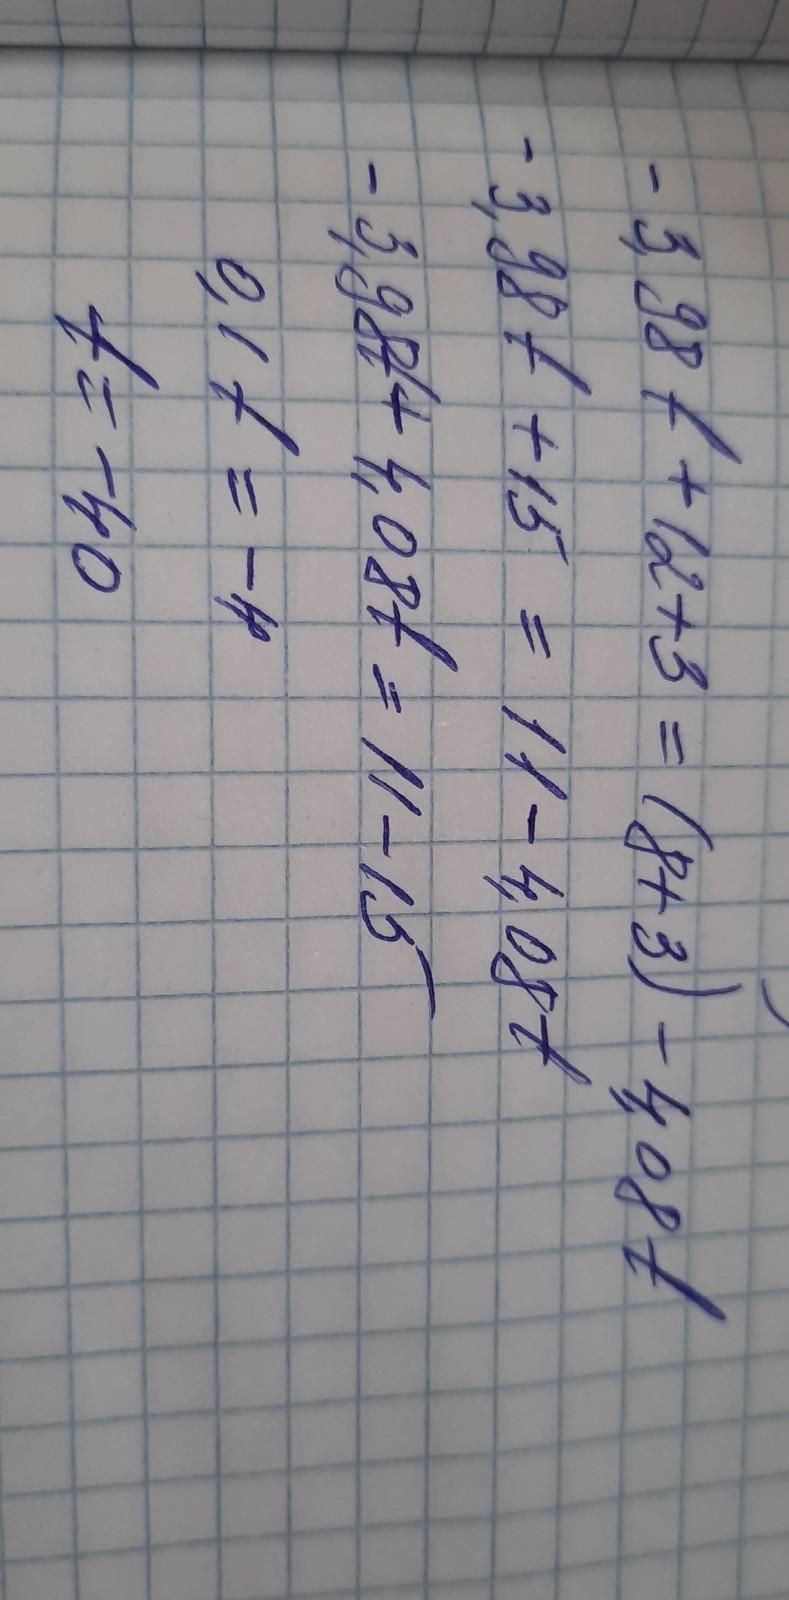 - 3,98t + 12 + 3 = (8+3) - 4,08t
- 3,98t + 15 = 11 - 4,08t
- 3,98t + 4,08t = 11 - 15
0,1t = -4
t = -40